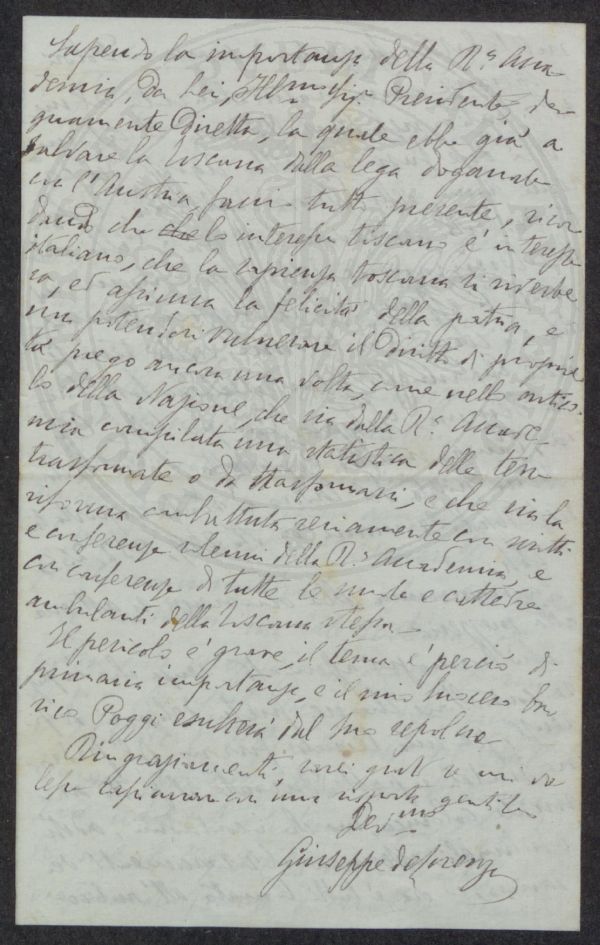 Sapendo la importanza della R.a Acca-
demia, da Lei, Ill.mo Sig.r Presidente, de-
gnamente diretta, la quale ebbe già a
salvare la Toscana dalla lega doganale
con l'Austria facio tutto presente, ricor
dando che che lo interesse toscano è interesse
italiano, che la sapienza toscana si riverbe
ra, ed assicura la felicità della patria, e
non potendosi vulnerare il diritto di proprie
tà prego ancora una volta, come nello artico-
lo della Nazione, che sia dalla R.a Accade-
mia compilata una statistica delle terre
trasformate o da trasformarsi, e che sia la
riforma combattuta seriamente con scritti
e conferenze solenni della R.a Accademia, e
con conferenze di tutte le scuole e cattedre
ambulanti della Toscana stessa.
Il pericolo è grave, il tema è perciò di
primaria importanza, e il mio suocero Enr
rico Poggi esulterà dal suo sepolcro
Ringraziamenti, sarei grato se mi vo
lesse una risposta gentile
Dev.mo
Giuseppe de Lorenzo